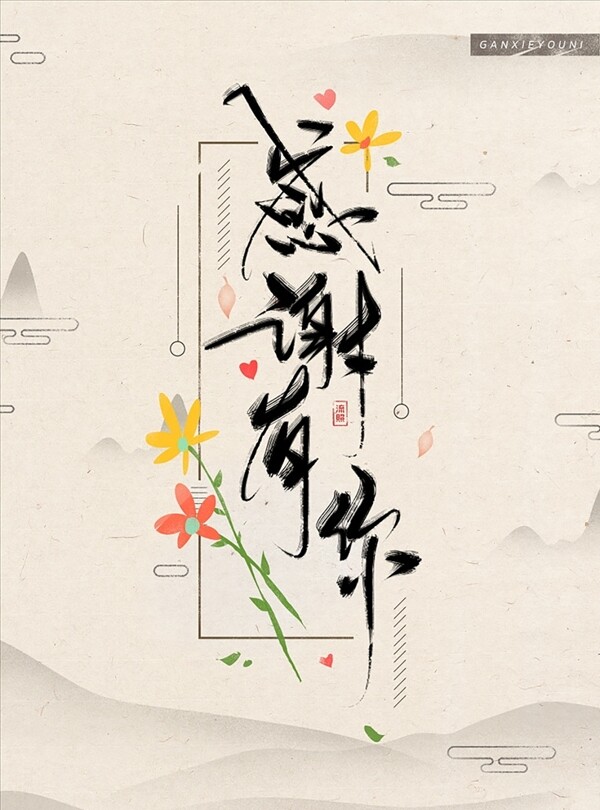 GANXIEYOUNI
感谢有你
流照